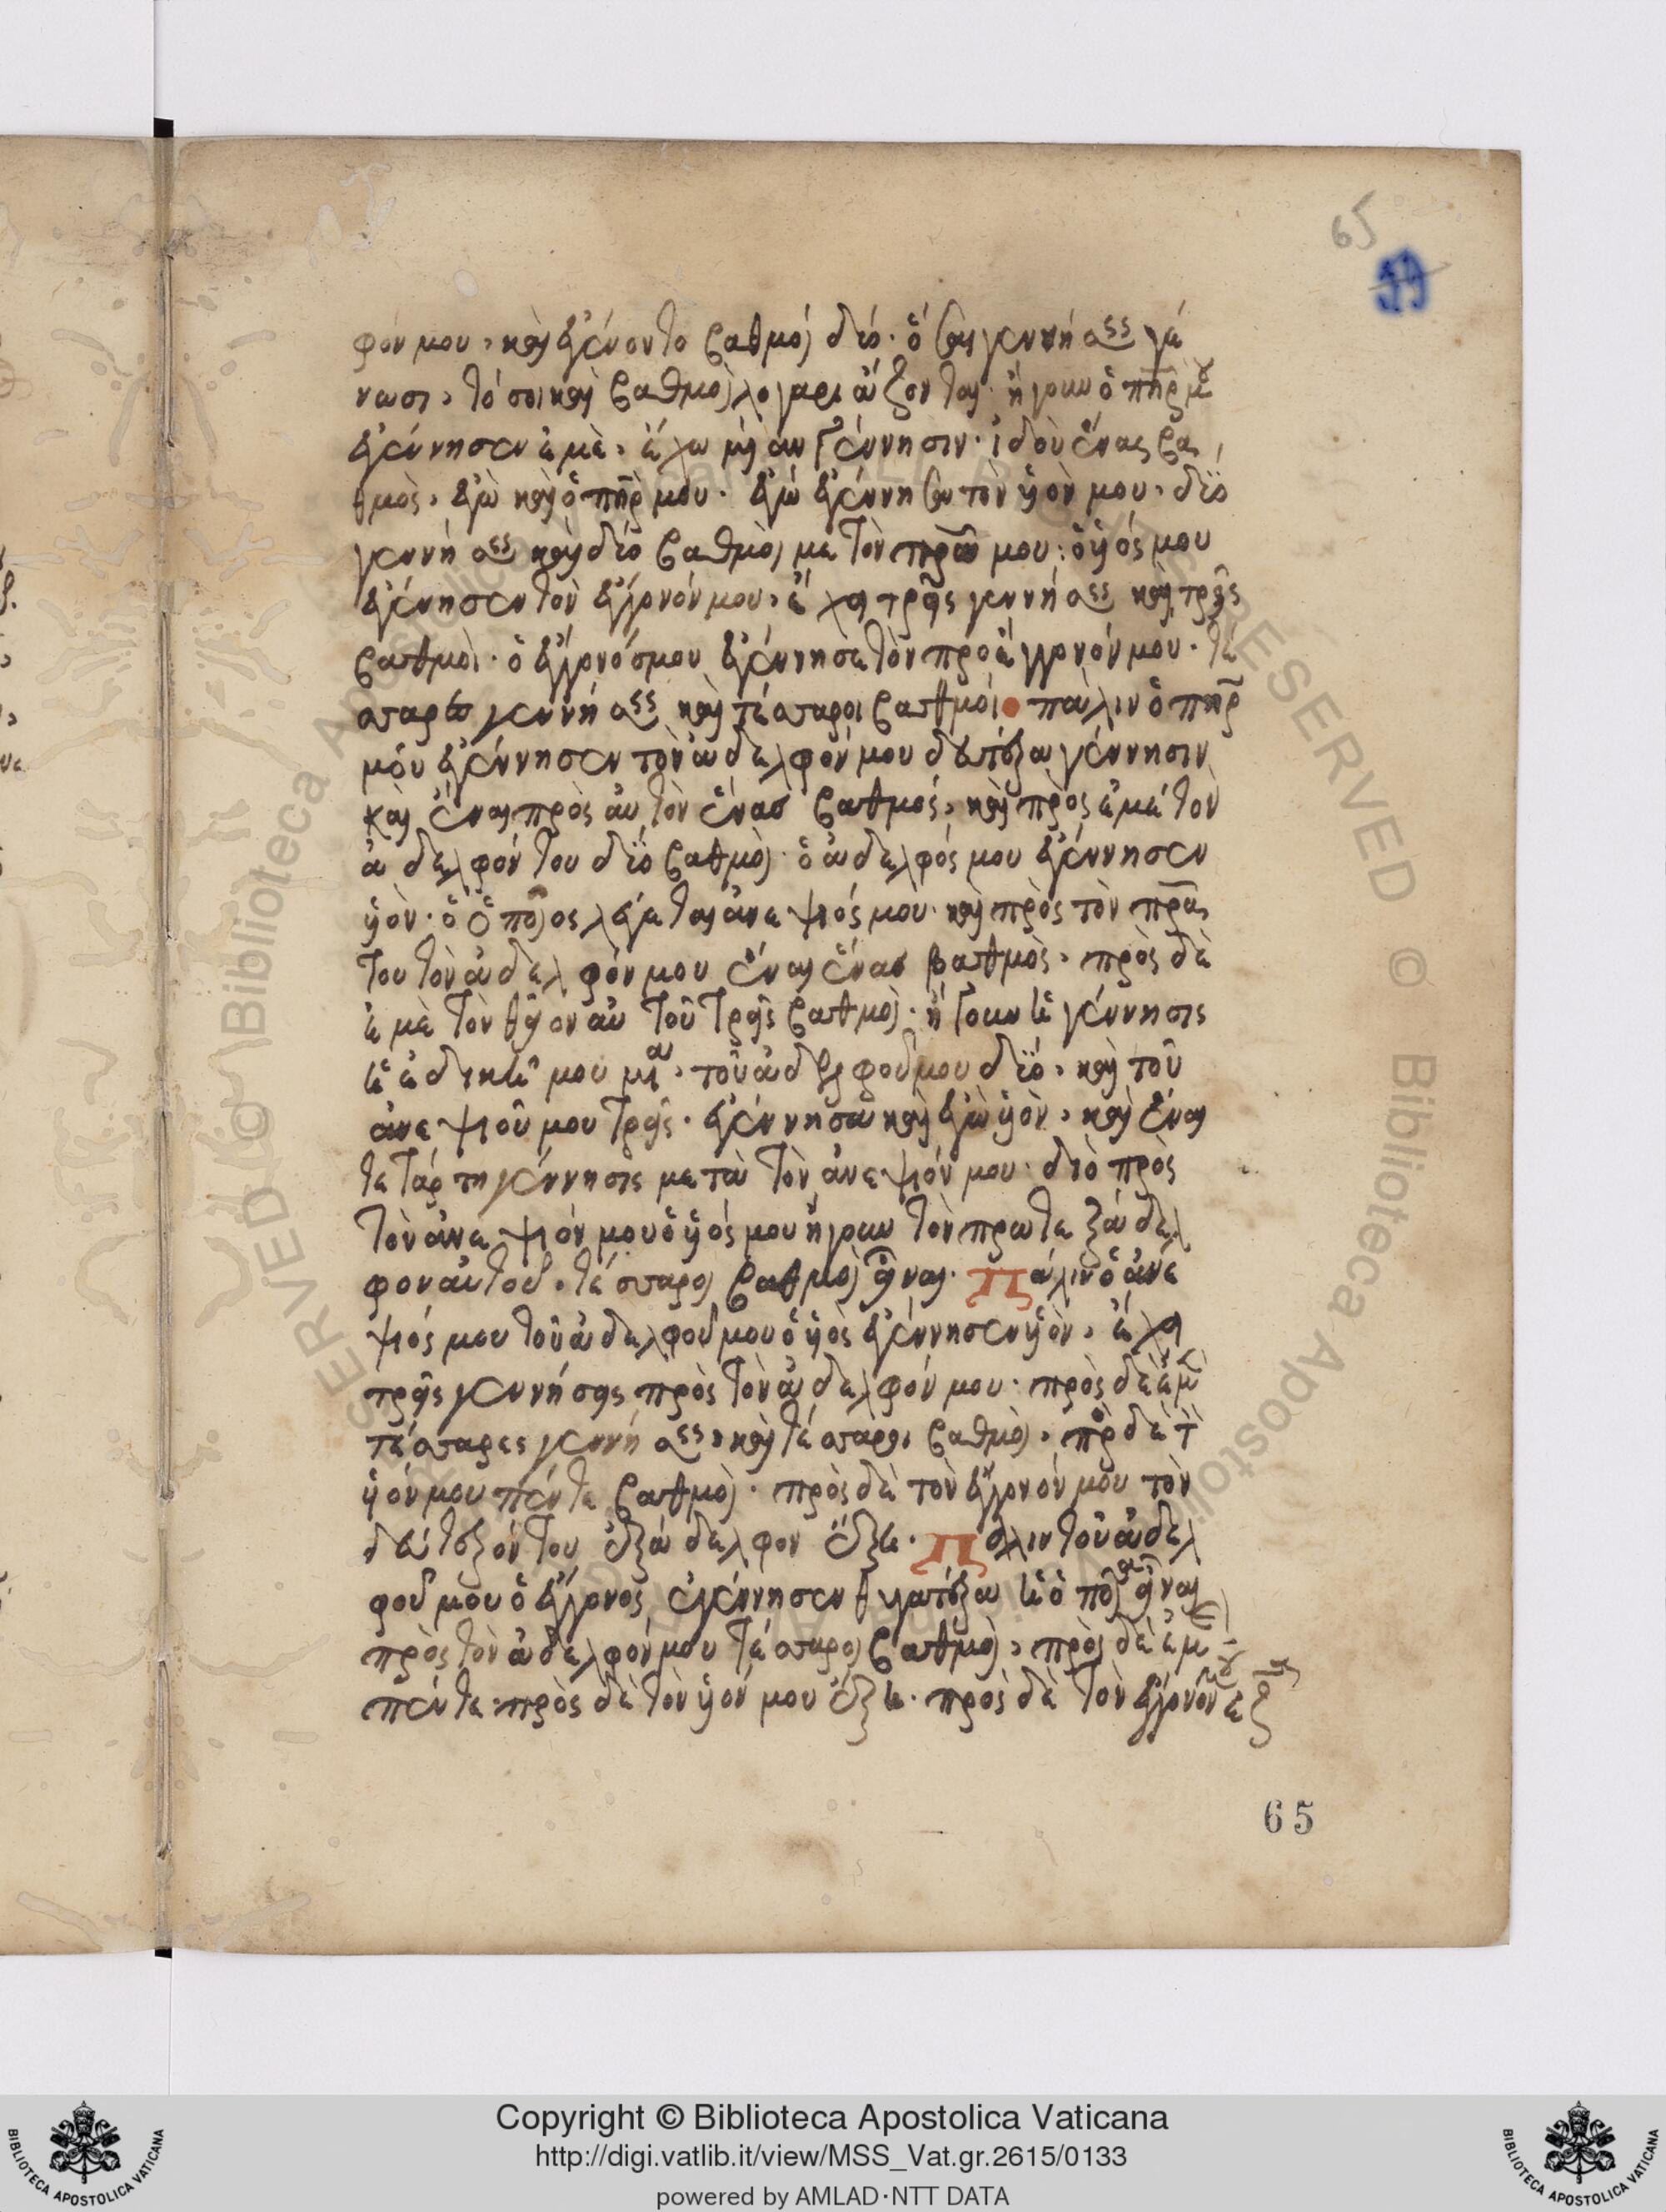 65
99
φόν μου, καὶ ἐγένοντο βαθμοὶ δύο· ὅσαι γεννήσεις γέ
νωσι, τόσοι καὶ βαθμοὶ λογαριάζονται. ἤγουν ὁ πηρ μου
ἐγέννησεν ἐμὲ, ἔχω μίαν γέννησιν· ἰδοὺ ἕνας βα
θμὸς, ἐγὼ καὶ ὁ πηρ μου. ἐγὼ ἐγέννησα τὸν ὑόν μου, δύο
γεννήσεις καὶ δύο βαθμοὶ με τὸν πρα μου· ὁ ὑός μου
ἐγέννησεν τὸν ἔγγονόν μου, ἔχει τρεῖς γεννήσεις καὶ τρεῖς
βαθμοί· ὁ ἔγγονός μου ἐγέννησε τὸν προέγγονόν μου· τέ
σσαρες γεννήσεις καὶ τέσσαροι βαθμοί· πάλιν ὁ πηρ
μου ἐγέννησεν τὸν ἀδελφόν μου δευτέραν γέννησιν
καὶ ἔναι πρὸς αὐτὸν ἕνας βαθμός, καὶ πρὸς ἐμέ τὸν
ἀδελφόν του δύο βαθμοὶ· ὁ ἀδελφός μου ἐγέννησεν
ὑόν· ὁ ὁποῖος λέγεται ἀνεψιός μου· καὶ πρὸς τὸν πρα
του τὸν ἀδελφόν μου ἔναι ἕνας βαθμὸς, πρὸς δὲ
ἐμὲ τὸν θεῖον αὐτοῦ τρεῖς βαθμοὶ· ἤγουν ἡ γέννησις
ἡ ἐδική μου μία, τοῦ ἀδελφοῦ μου δύο, καὶ τοῦ
ἀνεψιοῦ μου τρεῖς. ἐγέννησα καὶ ἐγὼ ὑὸν, καὶ ἔναι
τετάρτη γέννησις μετὰ τὸν ἀνεψιόν μου· διὸ πρὸς
τὸν ἀνεψιόν μου ὁ ὑός μου ἤγουν τὸν πρωτεξάδελ
φον αὐτοῦ, τέσσαροι βαθμοὶ εἶναι. Πάλιν ὁ ἀνε
ψιός μου τοῦ ἀδελφοῦ μου ὁ ὑὸς ἐγέννησεν ὑὸν, ἔχει
τρεῖς γεννήσεις πρὸς τὸν ἀδελφόν μου· πρὸς δὲ ἐμὲ
τέσσαρες γεννήσεις, καὶ τέσσαροι βαθμοὶ, πρὸς δὲ τὸν
ὑόν μου πέντε βαθμοὶ· πρὸς δὲ τὸν ἔγγονόν μου τὸν
δεύτερόν του ἐξάδελφον ἕξη. Πάλιν τοῦ ἀδελ
φοῦ μου ὁ ἔγγονος ἐγέννησεν θυγατέραν ἡ ὁποῖα εἶναι
πρὸς τὸν ἀδελφόν μου τέσσαροι βαθμοὶ, πρὸς δὲ ἐμὲ
πέντε· πρὸς δὲ τὸν ὑόν μου ἕξη· πρὸς δὲ τὸν ἔγγονόν μου ἑξ
65
Copyright © Biblioteca Apostolica Vaticana
http://digi.vatlib.it/view/MSS_Vat.gr.2615/0133
powered by AMLAD·NTT DATA